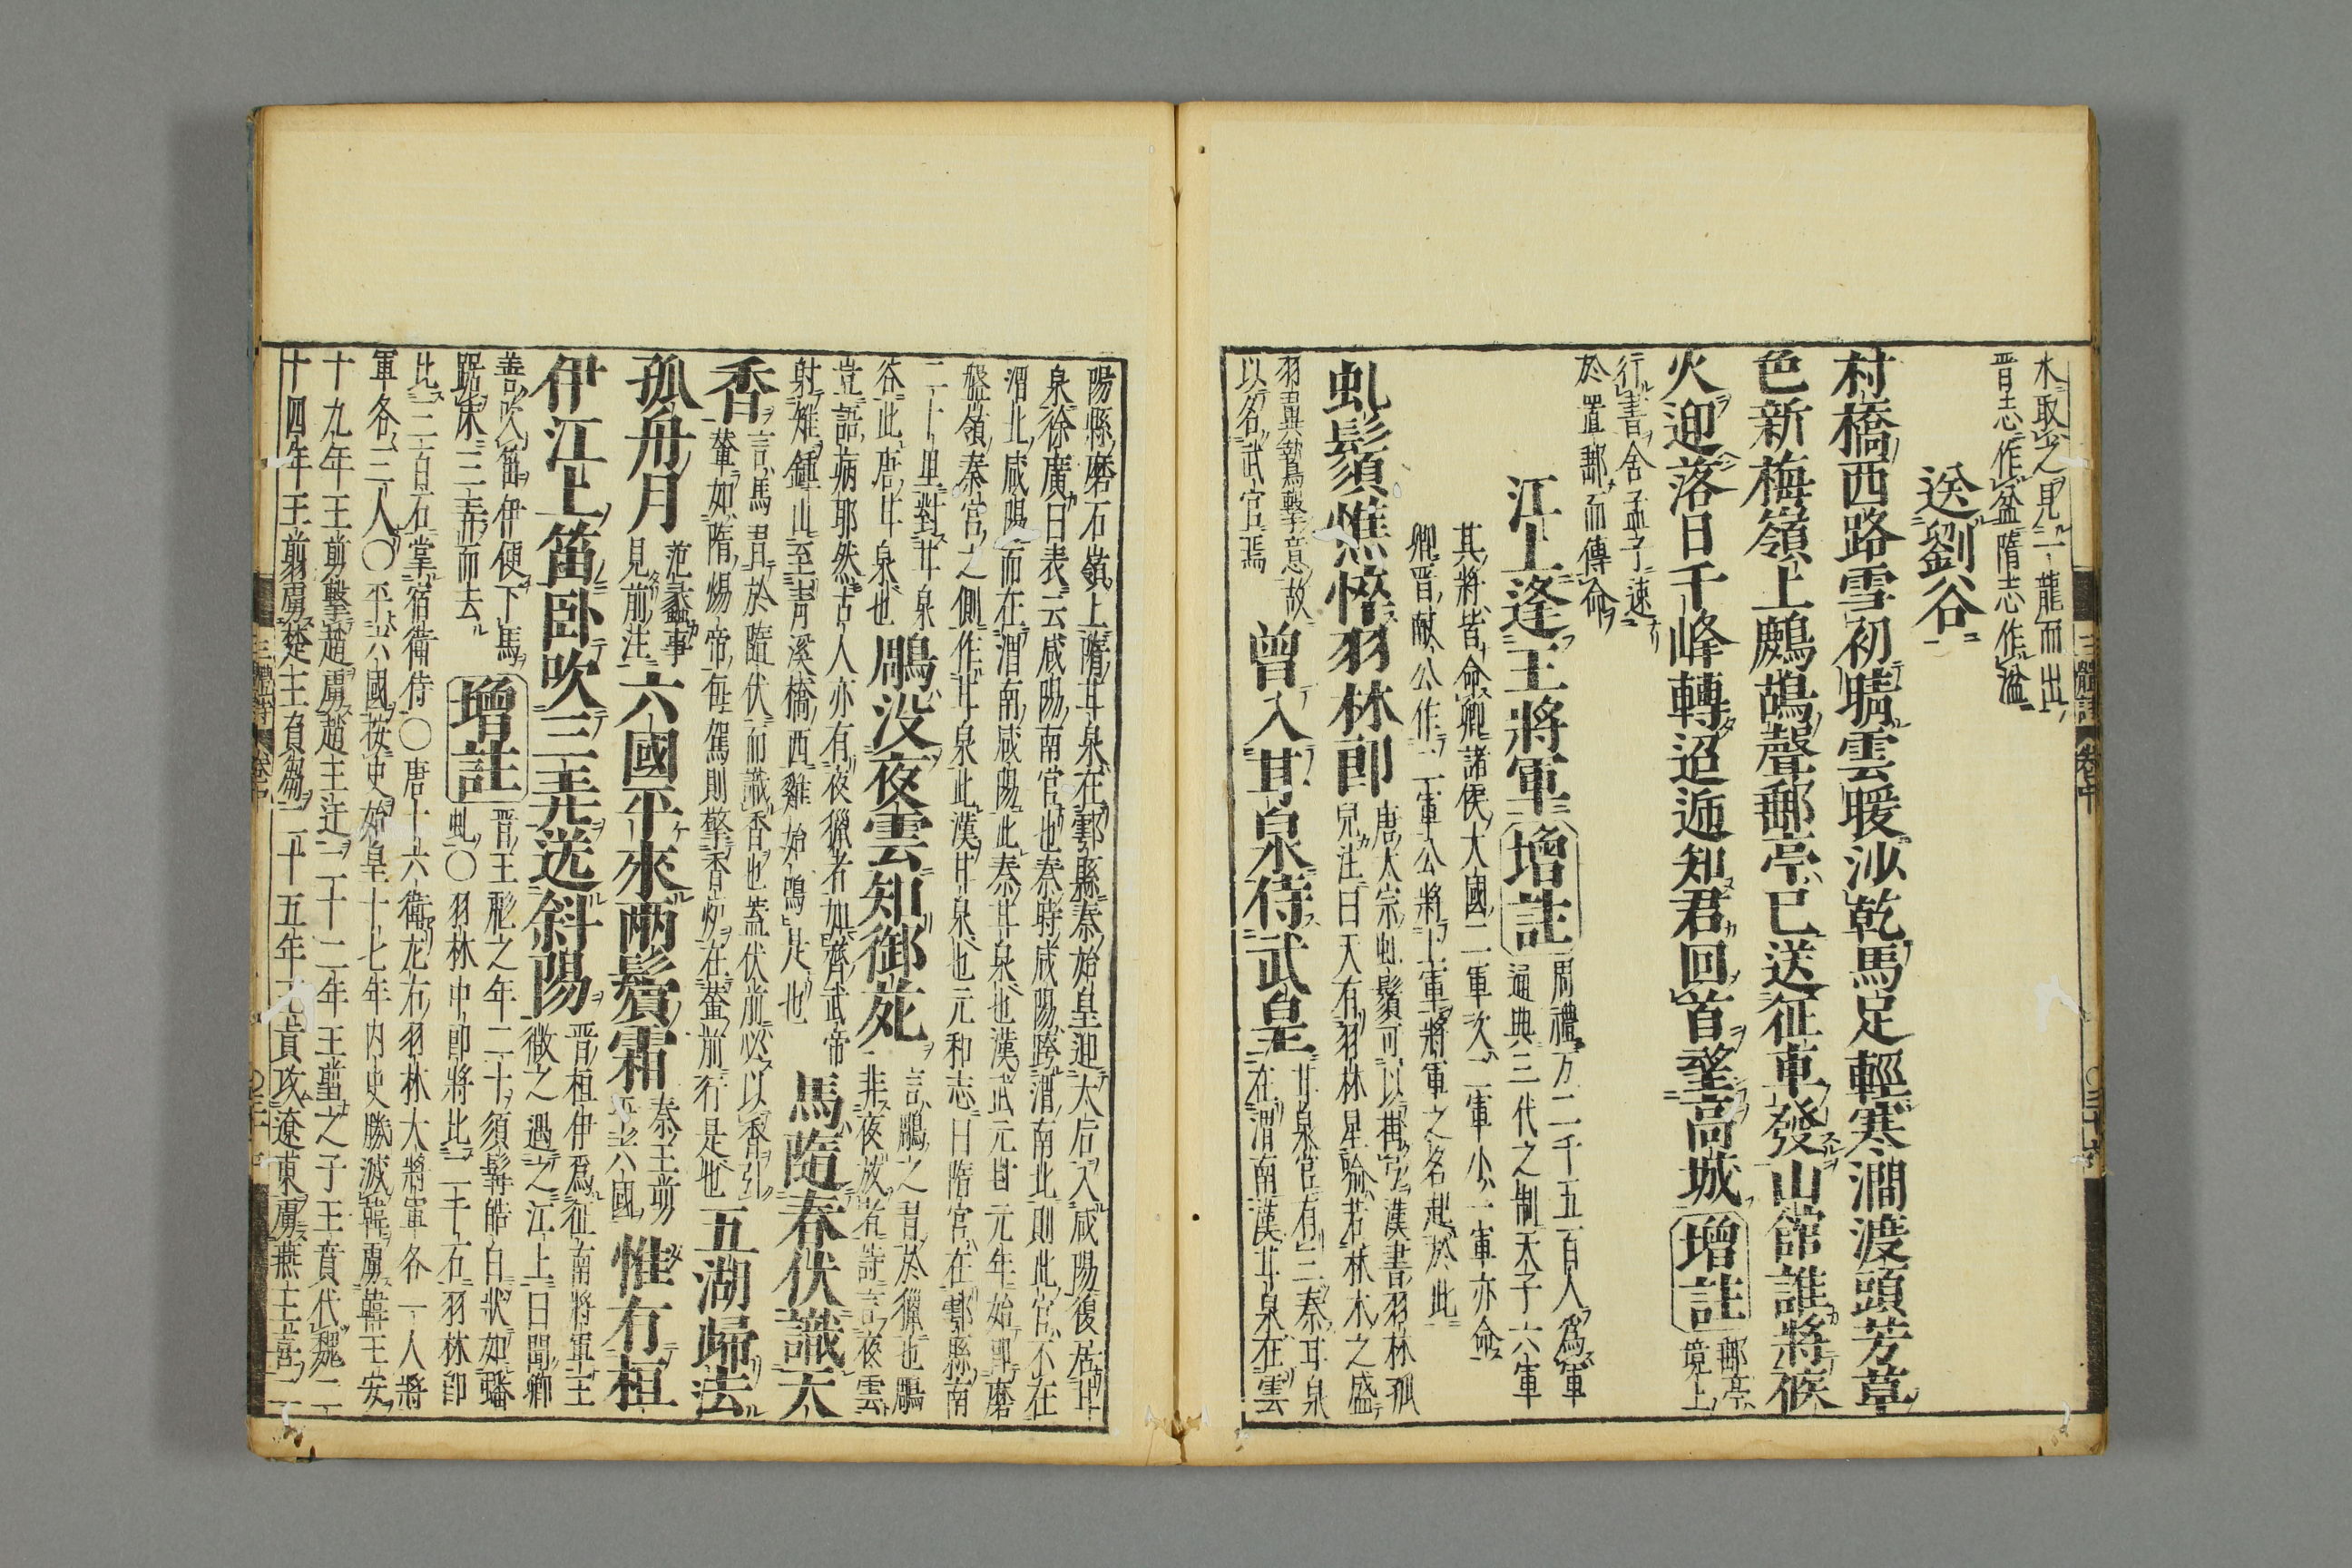 水取之見二龍而出
晋志作盆隋志作溢
送劉谷
村橋西路雪初晴雲暖沙乾馬足輕寒澗渡頭芳草
色新梅嶺上鷓鴣聲郵亭已送征車發山館誰將候
火迎落日千峰轉迢逓知君回首望高城
增註
郵亭
境上
行書舍孟子速
於置郵而傳命
江上逢王將軍
增註
周禮万二千五百人爲軍
通典三代之制天子六軍
其將皆命卿諸侯大國三軍次二軍小一軍亦命
卿晋献公作二軍公將上軍將軍之名起於此
虬鬚憔悴羽林郎
唐太宗虬鬚可以掛弓漢書羽林孤
兒注曰天有羽林星喩若林木之盛
羽翼鷙擊意故
以名武官焉
曾入甘泉侍武皇
甘泉宮有三秦甘泉
在渭南漢甘泉在雲
陽縣磨石嶺上隋甘泉在鄠縣秦始皇迎太后入咸陽復居甘
泉徐廣曰表云咸陽南宮也秦時咸陽跨渭南北則此宮不在
渭北咸陽而在渭南咸陽此秦甘泉也漢武元封元年始即磨
盤嶺秦宮之側作甘泉此漢甘泉也元和志曰隋宮在鄠縣南
二十里對甘泉
谷此唐甘泉也
鵰没夜雲知御苑
言鵰之習於獵也鵰
非夜放者詩言夜雲
豈語病耶然古人亦有夜獵者如齊武帝
射雉鍾山至青溪橋西雞始鳴是也
馬隨春仗識天
香
言馬習於隨仗而識香也蓋仗前必以香引
輦如隋煬帝每駕則擎香炉在輦前行是也
五湖歸去
孤舟月
范蠡事
見前注
六國平來兩鬢霜
秦王剪
平六國
惟有桓
伊江上笛卧吹三弄送斜陽
晋桓伊爲征南將軍王
徽之遇之江上曰聞卿
善吹笛伊便下馬
踞床三弄而去
增註
晋王彪之年二十須鬢皓白狀如蟠
虬○羽林中郎將比二千石羽林郎
比三百石掌宿衛侍○唐十六衛左右羽林大將軍各一人將
軍各三人○平六國按史始皇十七年内史勝滅韓虜韓王安
十九年王剪擊趙虜趙王迁二十二年王翦之子王賁代魏二
十四年王翦虜楚王負芻二十五年王賁攻遼東虜燕王喜二
三體詩
卷中